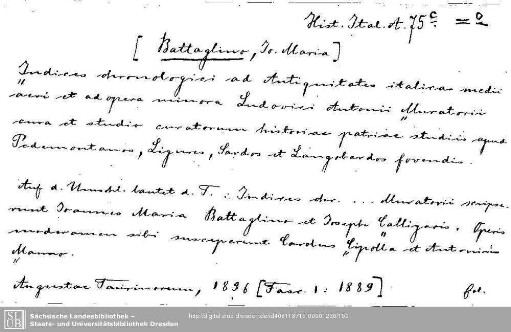 Hist. Ital. A. 75 c. = o
[Battaglino, Jo. Maria]
Indices chronologici ad Antiquitates italicas medii
aevi et ad opera minora Ludovici Antonii Muratorii
cura et studio curatorum historiae patriae studiis apud
Pedemontanos, Ligures, Sardos et Langobardos fovendis.
Auf d. Umschl. lautet d. T.: Indices chr. ... Muratorii scripse-
runt Joannes Maria Battaglino et Joseph Calligaris. Operis
moderamen sibi susceperunt Carolus Cipolla et Antonius
Manno.
Augustae Taurinorum, 1896 [Fasc. 1: 1889] fol.
Sächsische Landesbibliothek –
Staats- und Universitätsbibliothek Dresden